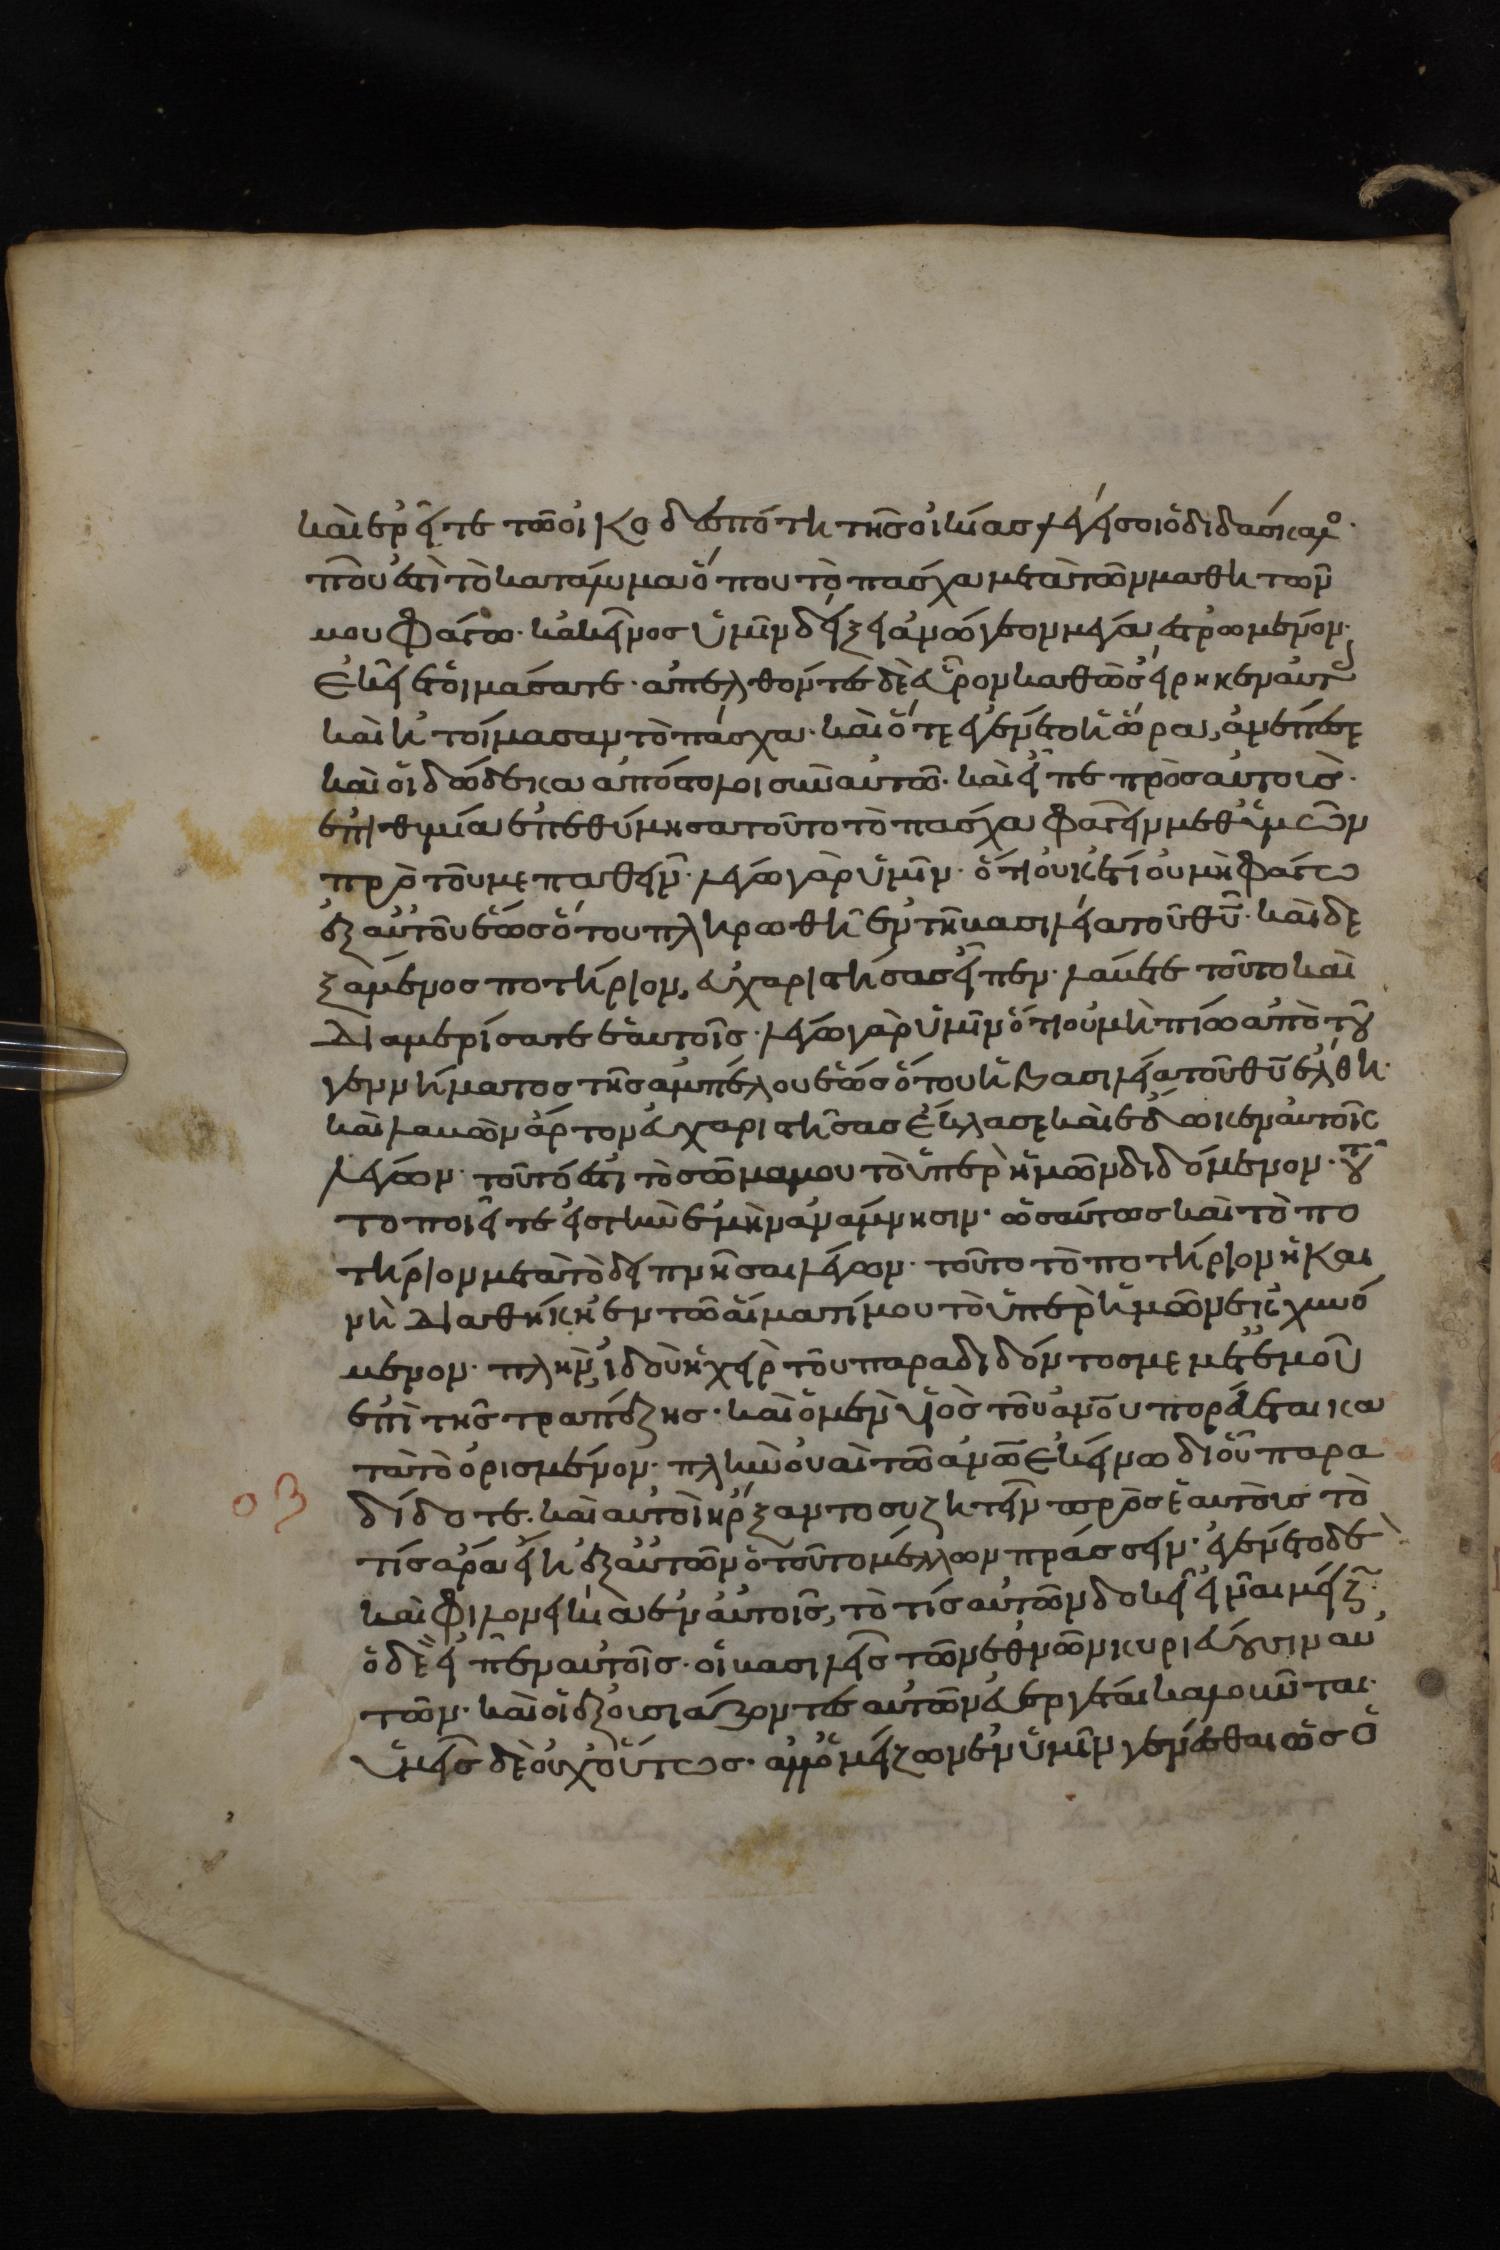 καὶ ἐρεῖτε τῶ οἰκοδεσπότη τῆς οἰκίας λέγει σοι ὁ διδάσκαλο·
ποῦ ἐστὶ τὸ κατάλυμα ὅπου τὸ πάσχα μετὰ τῶν μαθητῶν
μου φάγω· κἀκεῖνος ὑμῖν δείξει ἀνώγεον μέγα ἐστρωμένον·
ἐκεῖ ἑτοιμάσατε· ἀπελθόντες δὲ εὗρον καθὼς εἴρηκεν αὐτ
καὶ ἡτοίμασαν τὸ πάσχα· καὶ ὅτε ἐγένετο ἡ ὥρα, ἀνέπεσε
καὶ οἱ δώδεκα ἀπόστολοι σὺν αὐτῶ· καὶ εἶπε πρὸς αὐτούς·
ἐπιθυμία ἐπεθύμησα τοῦτο τὸ πάσχα φαγεῖν μεθ' ὑμῶν
πρὸ τοῦ με παθεῖν· λέγω γὰρ ὑμῖν· ὅτι οὐκέτι οὐ μὴ φάγω
ἐξ αὐτοῦ ἕως ὅτου πληρωθῆ ἐν τῆ βασιλεία τοῦ θυ· καὶ δε
ξάμενος ποτήριον, εὐχαριστήσας εἶπεν· λάβετε τοῦτο καὶ
διαμερίσατε ἑαυτοῖς· λέγω γὰρ ὑμῖν ὅτι οὐ μὴ πίω ἀπὸ τοῦ
γεννήματος τῆς ἀμπέλου ἕως ὅτου ἡ βασιλεία τοῦ θυ ἔλθη·
καὶ λαβὼν ἄρτον εὐχαριστήσας ἔκλασε καὶ ἔδωκεν αὐτοῖς
λέγων· τοῦτό ἐστι τὸ σῶμα μου τὸ ὑπὲρ ἡμῶν διδόμενον· τοῦ
το ποιεῖτε εἰς τὴν ἐμὴν ἀνάμνησιν· ὡσαύτως καὶ τὸ πο
τήριον μετὰ τὸ δειπνῆσαι λέγων· τοῦτο τὸ ποτήριον ἡ και
νὴ διαθήκη ἐν τῶ αἵματί μου τὸ ὑπὲρ ἡμῶν ἐκχυνό
μενον· πλὴν ἰδοὺ ἡ χεὶρ τοῦ παραδιδόντος με μετ' ἐμοῦ
ἐπὶ τῆς τραπέζης· καὶ ὁ μὲν υἱὸς τοῦ ανου πορεύεται κα
τὰ τὸ ὁρισμένον· πλὴν οὐαὶ τῶ ανω ἐκείνω δι' οὗ παρα
δίδοτε· καὶ αὐτοὶ ἤρξαντο συζητεῖν πρὸς ἑαυτοὺς τὸ
τίς ἄρα εἴη ἐξ αὐτῶν ὁ τοῦτο μέλλων πράσσειν· ἐγένετο δὲ
καὶ φιλονεικία ἐν αὐτοῖς, τὸ τίς αὐτῶν δοκεῖ εἶναι μείζ
ὁ δὲ εἶπεν αὐτοῖς· οἱ βασιλεῖς τῶν ἐθνῶν κυριεύουσιν αὐ
τῶν· καὶ οἱ ἐξουσιάζοντες αὐτῶν εὐεργέται καλοῦνται·
ὑμεῖς δὲ οὐχ οὕτως· ἀλλ' ὁ μείζων ἐν ὑμῖν γενέσθαι ὡς ὁ